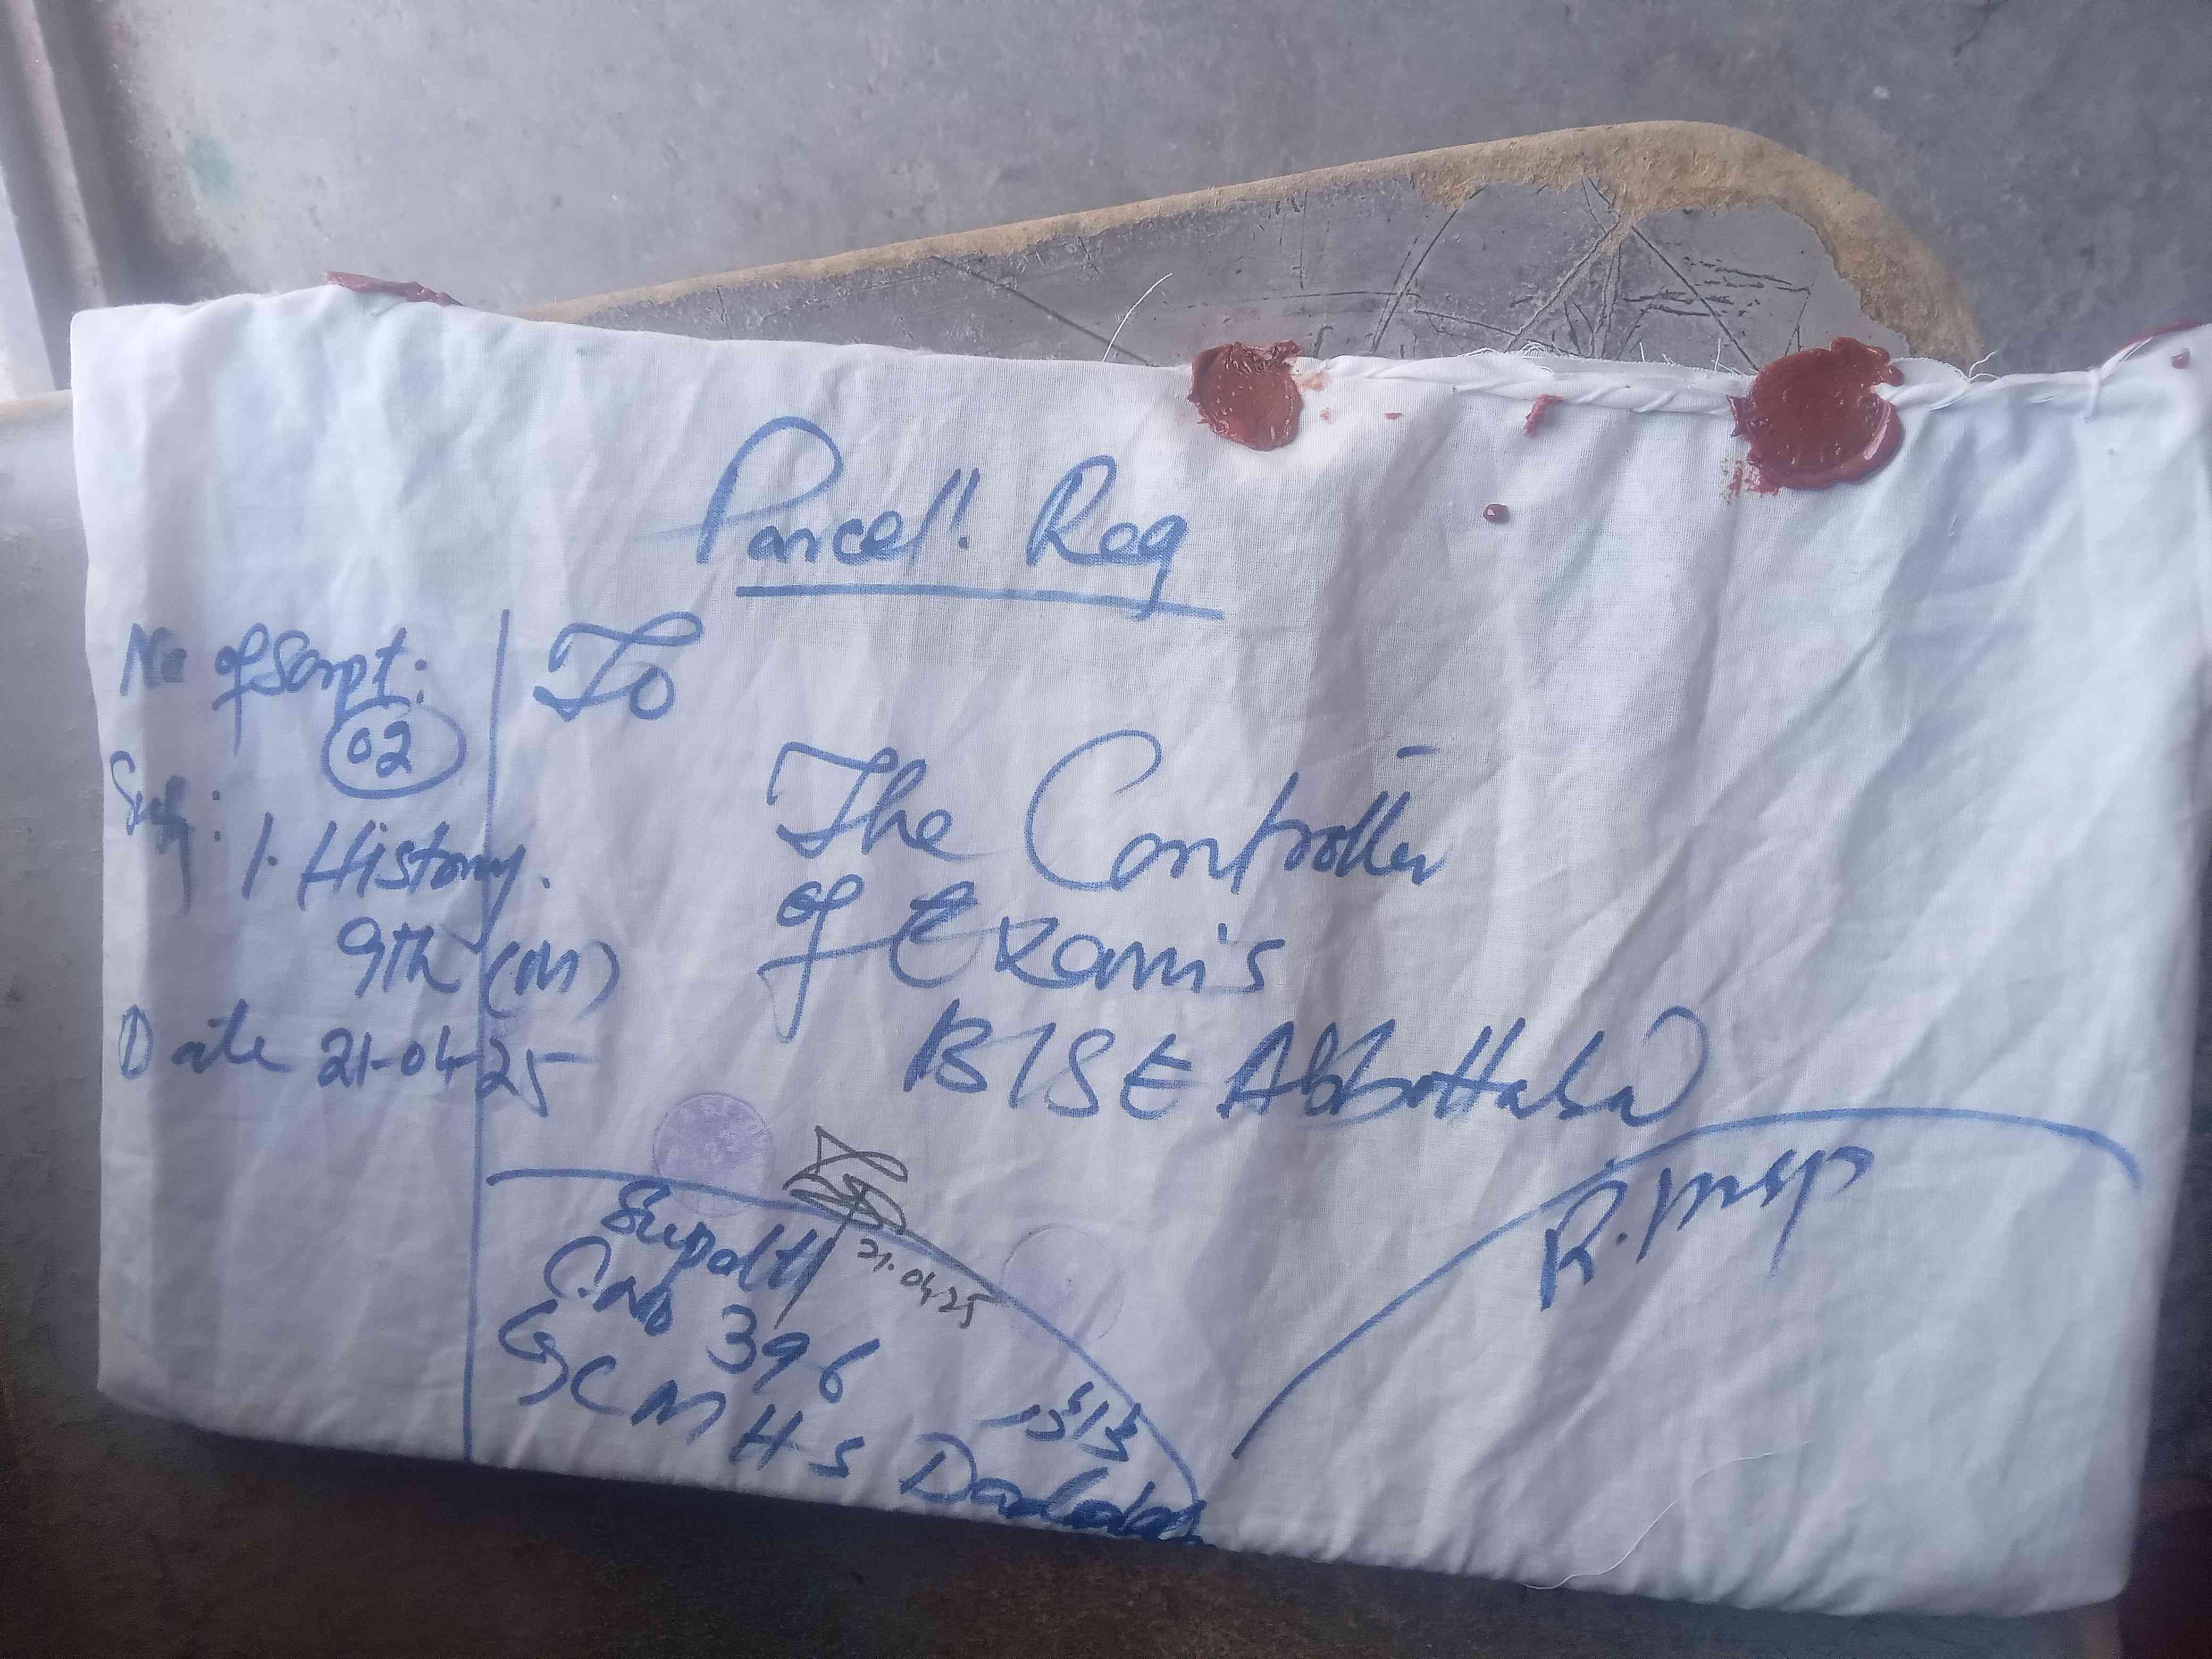 Parcel. Reg
No of Script:
02
Subj: I. History.
9th (M)
Date 21-04-25
To
The Controller
of Exam's
BISE Abbottabad
Supdtt
21.04.25
C.No 396
GCMHS
R.